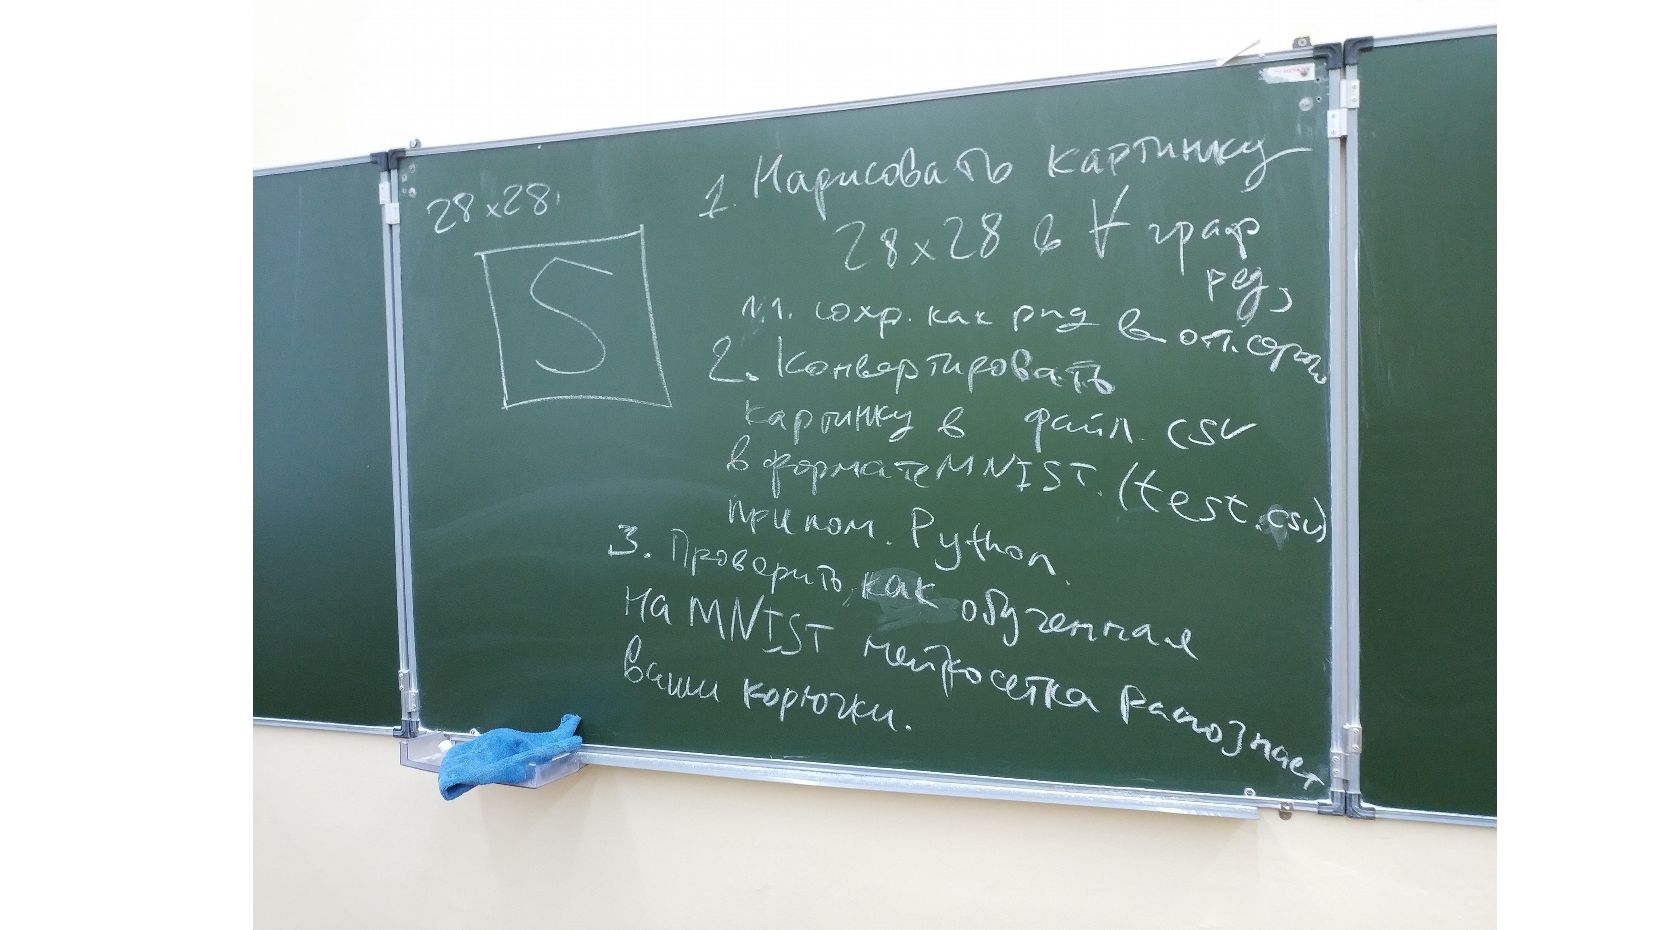 28x28
S
1. Нарисовать картинку
28x28 в ∀ граф
ред,
1.1. сохр. как png в от.
2. Конвертировать
картинку в файл csv
в формате MNIST. (test.csv)
при пом. Python.
3. Проверить, как обученная
на MNIST нейросетка распознает
ваши корючки.